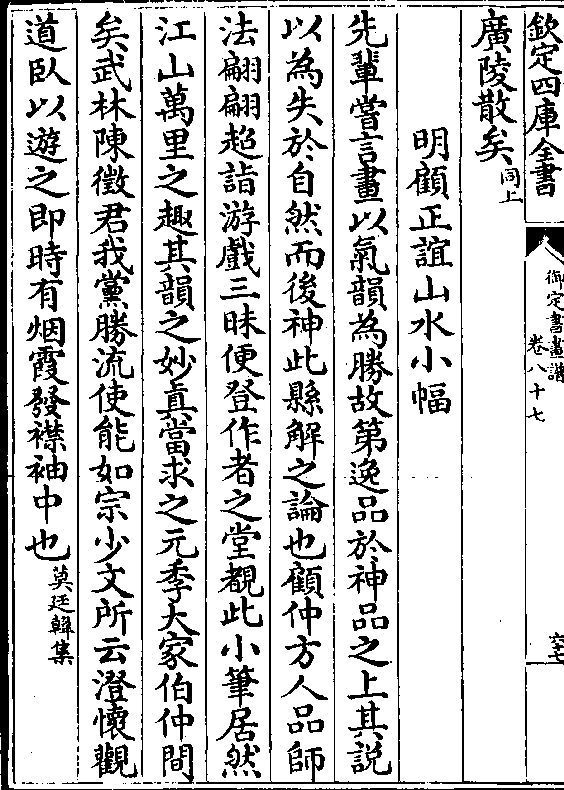 欽定四庫全書
御定書畫譜
卷八十七
六十七
廣陵散矣同上
明顧正誼山水小幅
先輩嘗言畫以氣韻為勝故第逸品於神品之上其説
以為失於自然而後神此縣解之論也顧仲方人品師
法翩翩超詣游戲三昧便登作者之堂覩此小筆居然
江山萬里之趣其韻之妙真當求之元季大家伯仲間
矣武林陳徵君我黨勝流使能如宗少文所云澄懷觀
道臥以遊之即時有烟霞發襟袖中也莫廷韓集